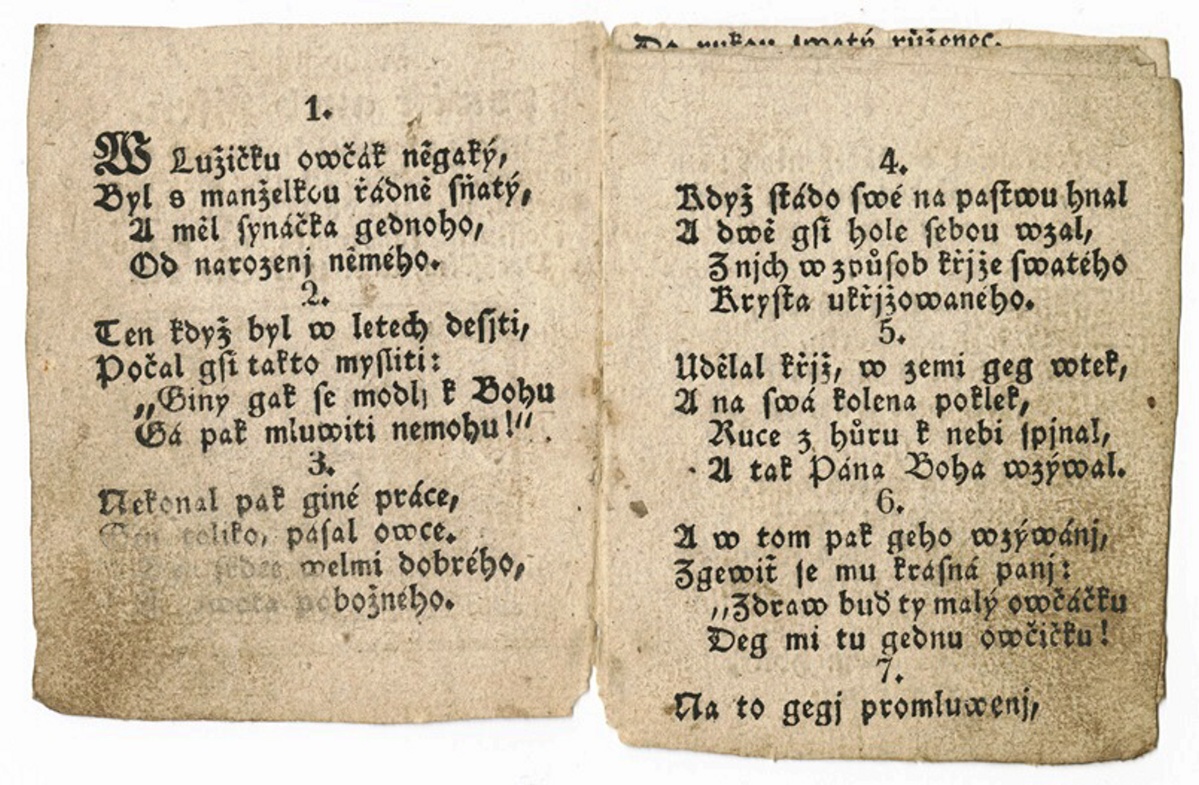 1.
W Lužičku owčák něgaký,
Byl s manželkou řádně sňatý,
A měl synáčka gednoho,
Od narozenj němého.
2.
Ten když byl w letech desjti,
Počal gsi takto mysliti:
„Giny gak se modlj k Bohu
Gá pak mluwiti nemohu!“
3.
Nekonal pak giné práce,
toliko, pásal owce.
welmi dobrého,
pobožného.
Do rukou swatý růženec.
4.
Když stádo swé na pastwu hnal
A dwě gsi hole sebou wzal,
Z njch w způsob křjže swatého
Krysta ukřjžowaného.
5.
Udělal křjž, w zemi geg wtek,
A na swá kolena poklek,
Ruce z hůru k nebi spjnal,
A tak Pána Boha wzýwal.
6.
A w tom pak geho wzýwánj,
Zgewit se mu krásná panj:
„Zdraw buď ty malý owčáčku
Deg mi tu gednu owčičku!
7.
Na to gegj promluwenj,